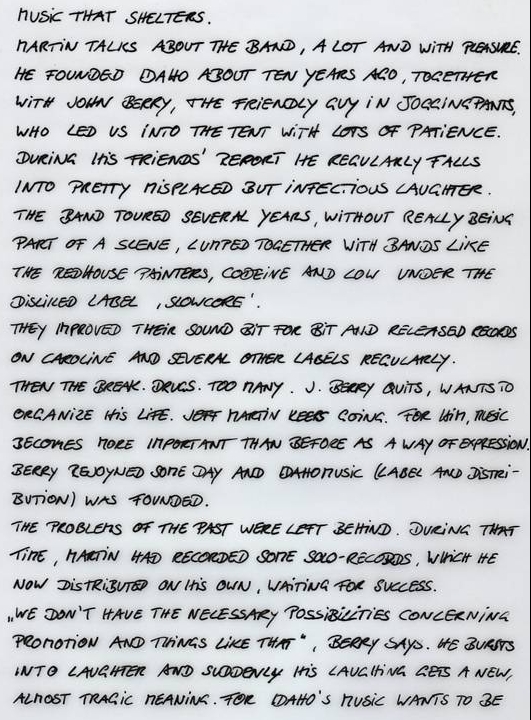 MUSIC THAT SHELTERS.
MARTIN TALKS ABOUT THE BAND, A LOT AND WITH PLEASURE.
HE FOUNDED IDAHO ABOUT TEN YEARS AGO, TOGETHER
WITH JOHN BERRY, THE FRIENDLY GUY IN JOGGINGPANTS,
WHO LED US INTO THE TENT WITH LOTS OF PATIENCE.
DURING HIS FRIENDS' REPORT HE REGULARLY FALLS
INTO PRETTY MISPLACED BUT INFECTIOUS LAUGHTER.
THE BAND TOURED SEVERAL YEARS, WITHOUT REALLY BEING
PART OF A SCENE, LUMPED TOGETHER WITH BANDS LIKE
THE REDHOUSE PAINTERS, CODEINE AND LOW UNDER THE
DISLIKED LABEL ‚SLOWCORE'.
THEY IMPROVED THEIR SOUND BIT FOR BIT AND RELEASED RECORDS
ON CAROLINE AND SEVERAL OTHER LABELS REGULARLY.
THEN THE BREAK. DRUGS. TOO MANY. J. BERRY QUITS, WANTS TO
ORGANIZE HIS LIFE. JEFF MARTIN KEEPS GOING. FOR HIM, MUSIC
BECOMES MORE IMPORTANT THAN BEFORE AS A WAY OF EXPRESSION.
BERRY REJOYNED SOME DAY AND IDAHOMUSIC (LABEL AND DISTRI-
BUTION) WAS FOUNDED.
THE PROBLEMS OF THE PAST WERE LEFT BEHIND. DURING THAT
TIME, MARTIN HAD RECORDED SOME SOLO-RECORDS, WHICH HE
NOW DISTRIBUTED ON HIS OWN, WAITING FOR SUCCESS.
„WE DON'T HAVE THE NECESSARY POSSIBILITIES CONCERNING
PROMOTION AND THINGS LIKE THAT", BERRY SAYS. HE BURSTS
INTO LAUGHTER AND SUDDENLY HIS LAUGHING GETS A NEW,
ALMOST TRAGIC MEANING. FOR IDAHO'S MUSIC WANTS TO BE